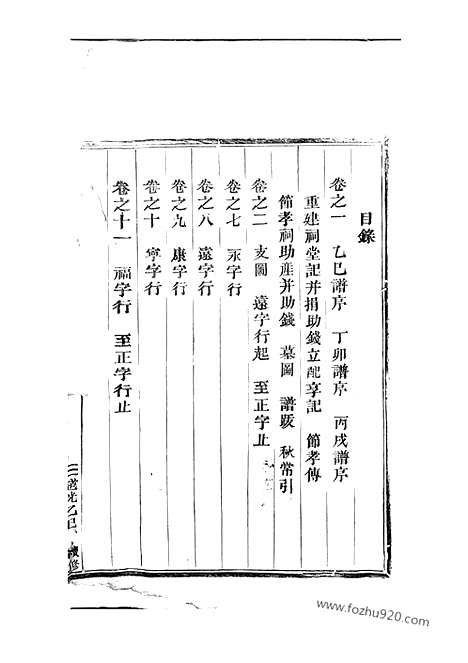 目錄
卷之一 乙巳譜序 丁卯譜序 丙戌譜序
重建祠堂記并捐助錢立配享記 節孝傳
節孝祠助產并助錢 墓圖 譜跋 秋常引
卷之二 支圖 遠字行起 至正字止
卷之七 永字行
卷之八 遠字行
卷之九 康字行
卷之十 寧字行
卷之十一 福字行 至正字行止
道光乙巳 續修
www.fozhu920.com